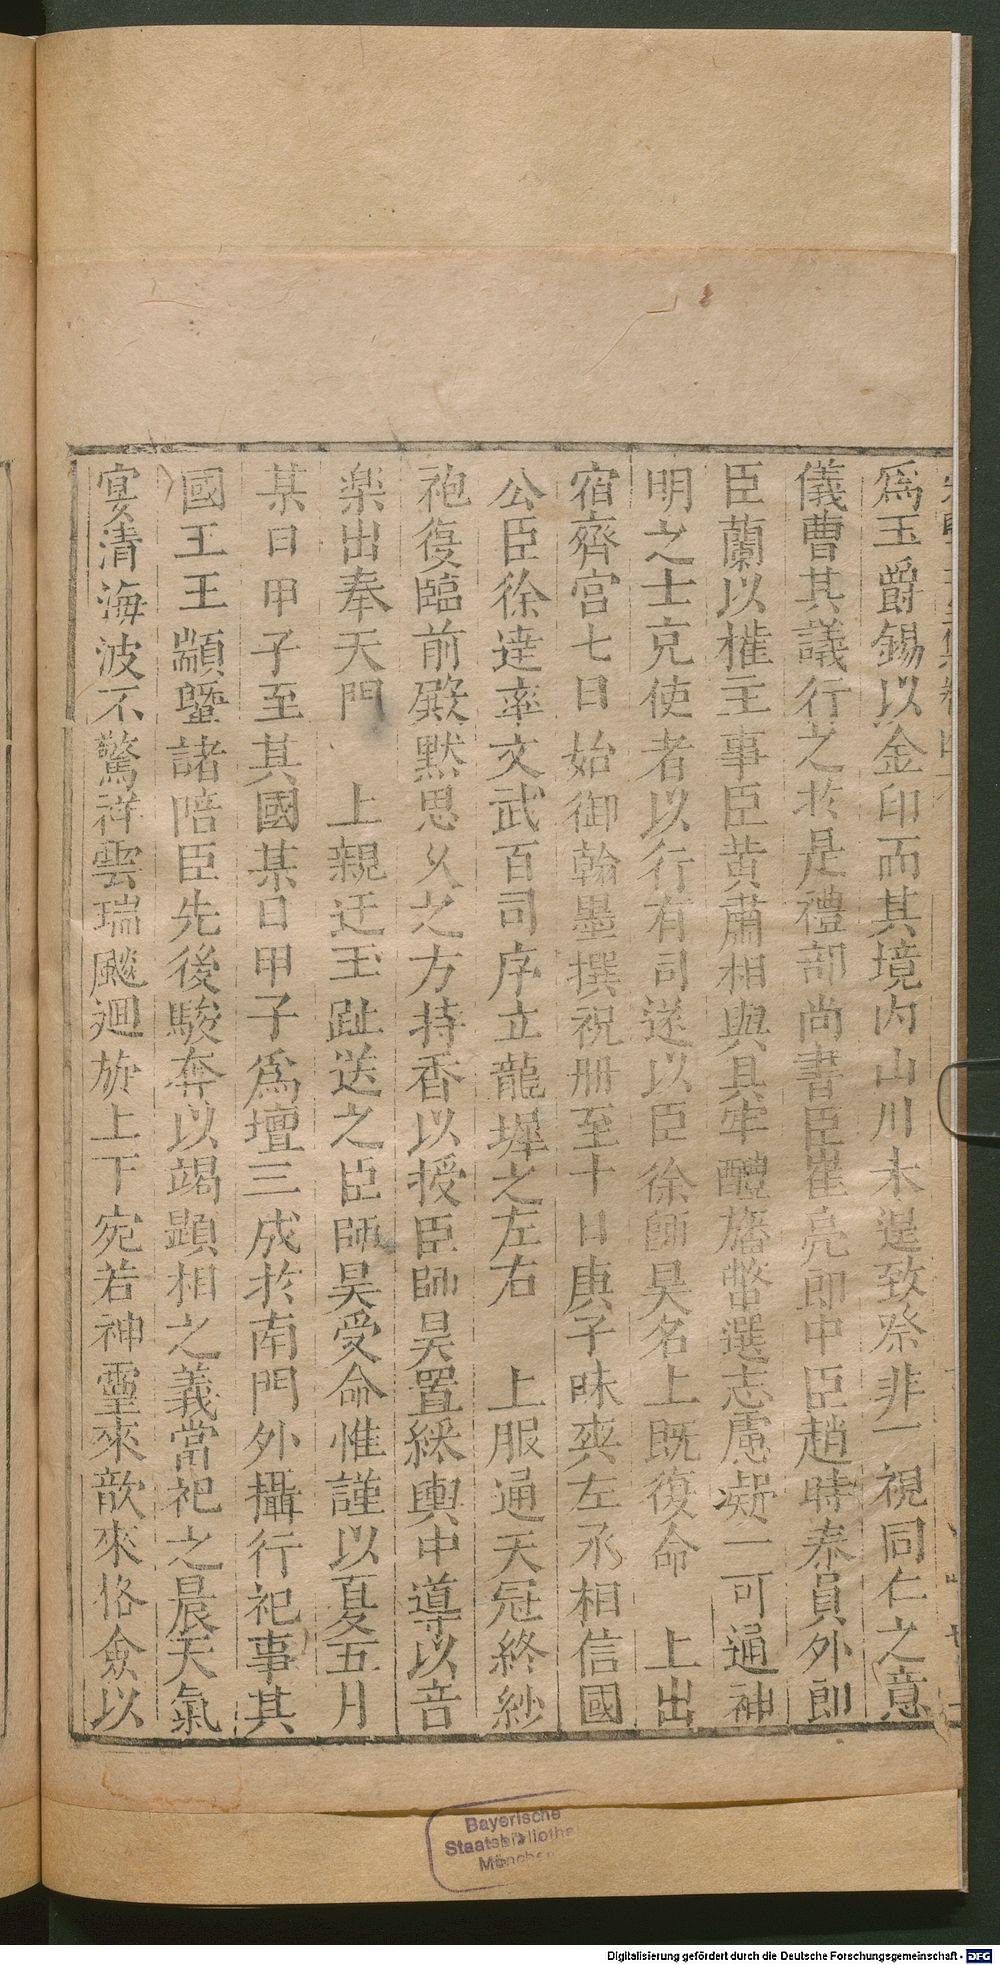 爲玉爵錫以金印而其境内山川未遑致祭非一視同仁之意
儀曹其議行之於是禮部尚書臣崔亮郎中臣趙時泰員外郎
臣蘭以權主事臣黄肅相與具牢醴旛幣選志慮凝一可通神
明之士克使者以行有司遂以臣徐師昊名上既復命　上出
宿齊宫七日始御翰墨撰祝册至十日庚子昧爽左丞相信國
公臣徐達率文武百司序立龍墀之左右　上服通天冠終紗
袍復臨前殿黙思久之方持香以授臣師昊置綵輿中導以音
楽出奉天門　上親迂玉趾送之臣師昊受命惟謹以夏五月
某日甲子至其國某日甲子爲壇三成於南門外攝行祀事其
國王王顓曁諸陪臣先後駿奔以竭顯相之義當祀之晨天氣
宴清海波不驚祥雲瑞飈迴旋上下宛若神靈來歆來格僉以
Bayerische
Staatsbibliothe
München
Digitalisierung gefördert durch die Deutsche Forschungsgemeinschaft - DFG